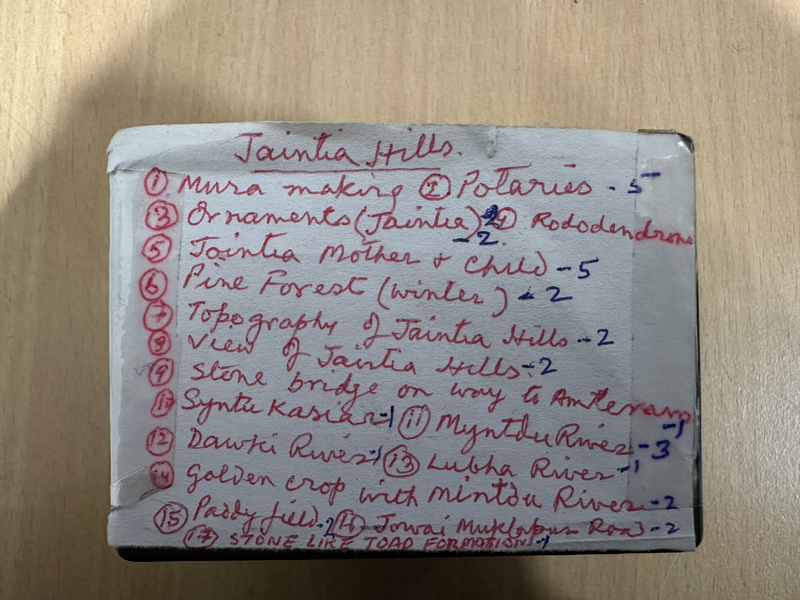 Jaintia Hills.
① Mura making ② Potaries - 5
③ Ornaments (Jaintia) ④ Rododendrons
- 2
⑤ Jaintia Mother & Child - 5
⑥ Pine Forest (winter) - 2
⑦ Topography of Jaintia Hills - 2
⑧ View of Jaintia Hills - 2
⑨ Stone bridge on way to Amteram - 1
⑩ Syntu Kasiar - 1 ⑪ Myntdu River - 3
⑫ Dawki River - 1 ⑬ Lubha River - 1
⑭ Golden crop with Mintdu River - 2
⑮ Paddy field - 2 ⑯ Jowai Muklapur Road - 2
⑰ STONE LIKE TOAD FORMATION - 1